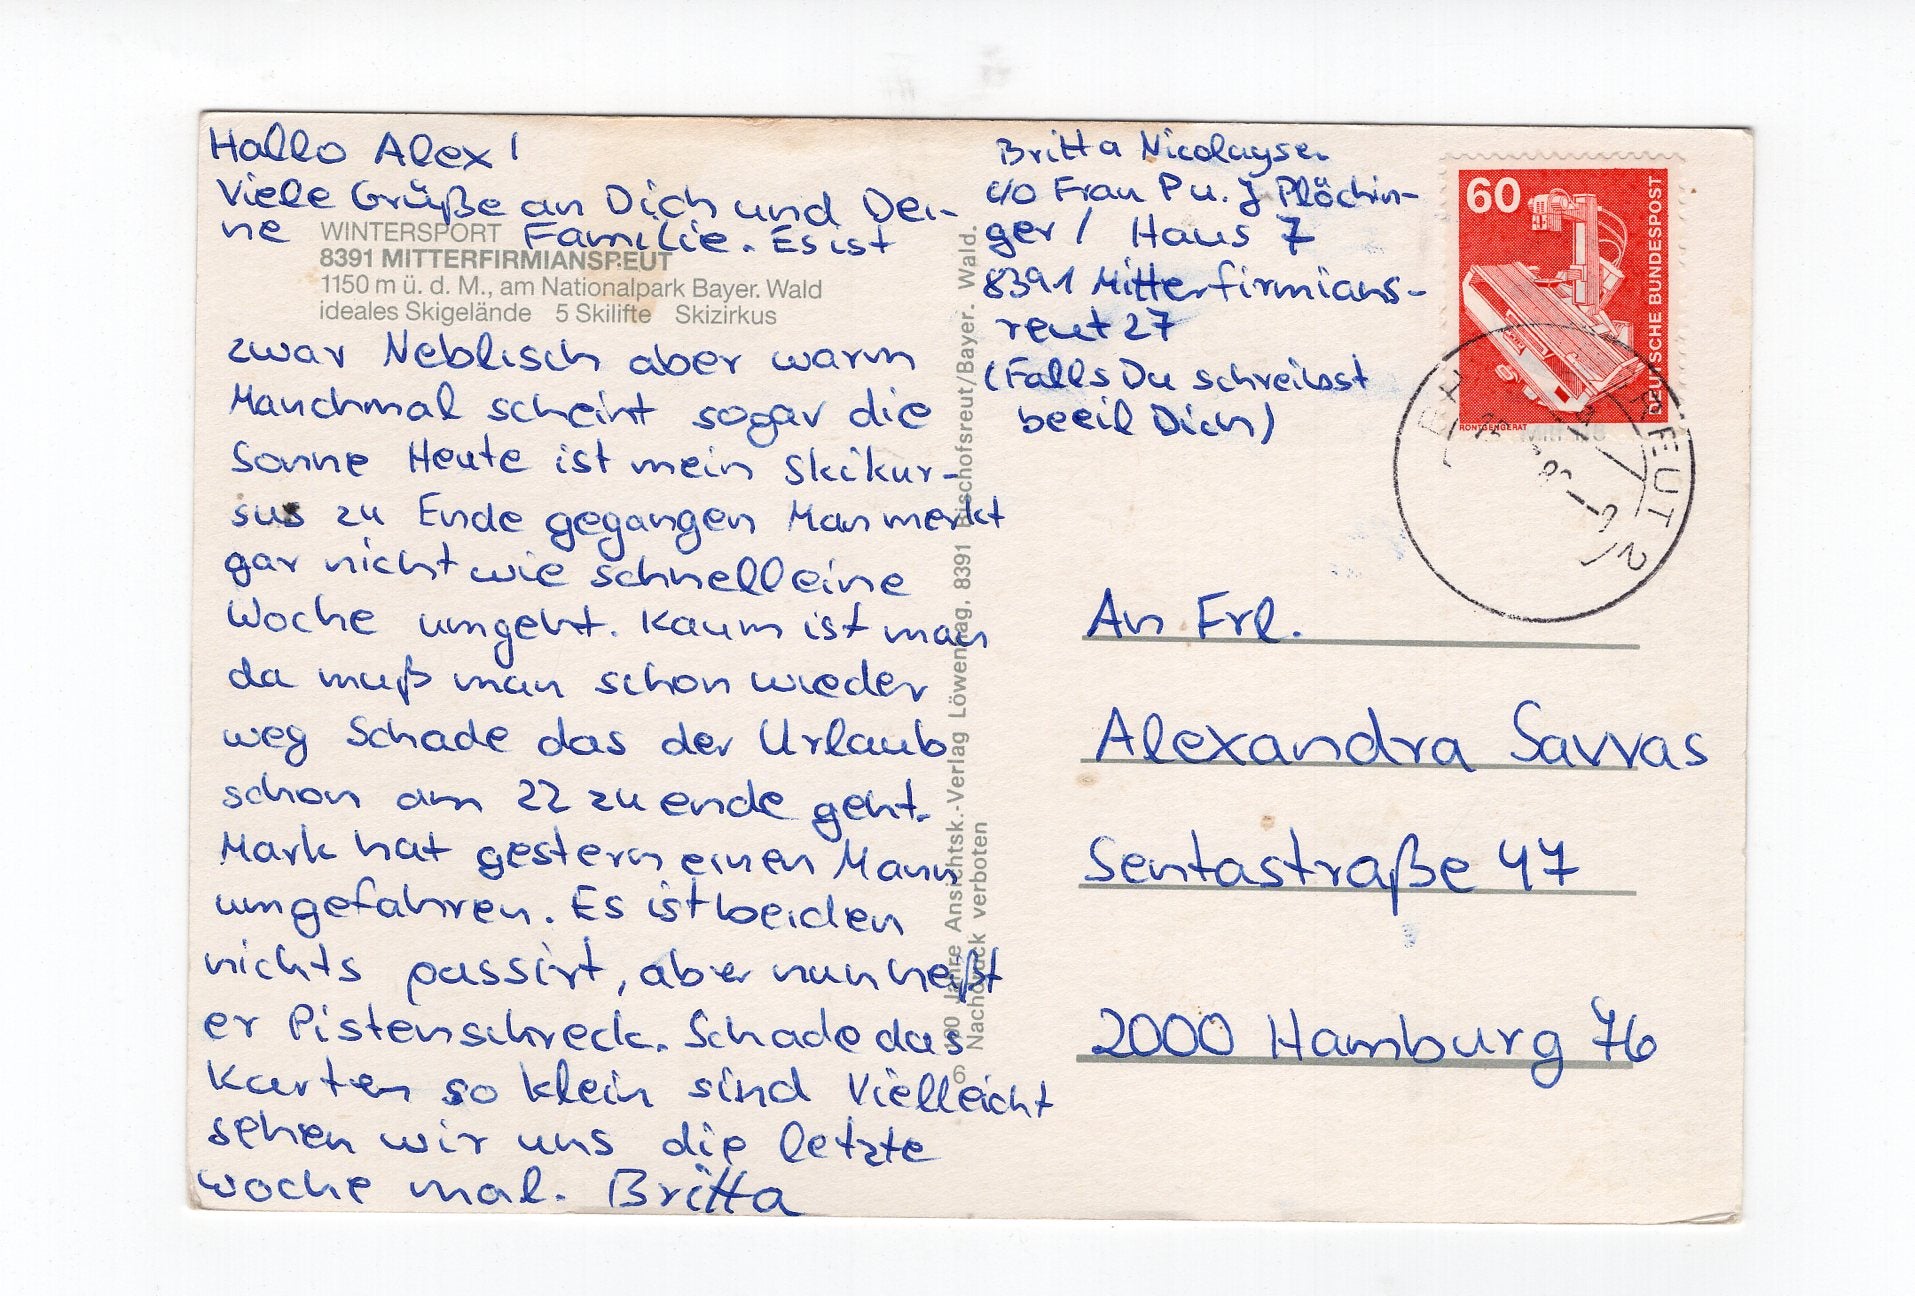 Hallo Alex!
Viele Grüße an Dich und Dei-
ne Familie. Es ist
WINTERSPORT
8391 MITTERFIRMIANSREUT
1150 m ü. d. M., am Nationalpark Bayer. Wald
ideales Skigelände 5 Skilifte Skizirkus
zwar Neblisch aber warm
Manchmal scheint sogar die
Sonne Heute ist mein Skikur-
sus zu Ende gegangen Man merkt
gar nicht wie schnell eine
Woche umgeht. Kaum ist man
da muß man schon wieder
weg Schade das der Urlaub
schon am 22 zu ende geht.
Mark hat gestern einen Mann
umgefahren. Es ist beiden
nichts passirt, aber nun heißt
er Pistenschreck. Schade das
Karten so klein sind Vielleicht
sehen wir uns die letzte
woche mal. Britta
100 Jahre Ansichtsk.-Verlag Löwenhag, 8391 Bischofsreut/Bayer. Wald.
Nachdruck verboten
Britta Nicolaysen
c/o Frau P u. J Plöchin-
ger / Haus 7
8391 Mitterfirmians-
reut 27
(Falls Du schreibst
beeil Dich)
60
DEUTSCHE BUNDESPOST
RÖNTGENGERÄT
REUT 2
An Frl.
Alexandra Savvas
Sentastraße 47
2000 Hamburg 76